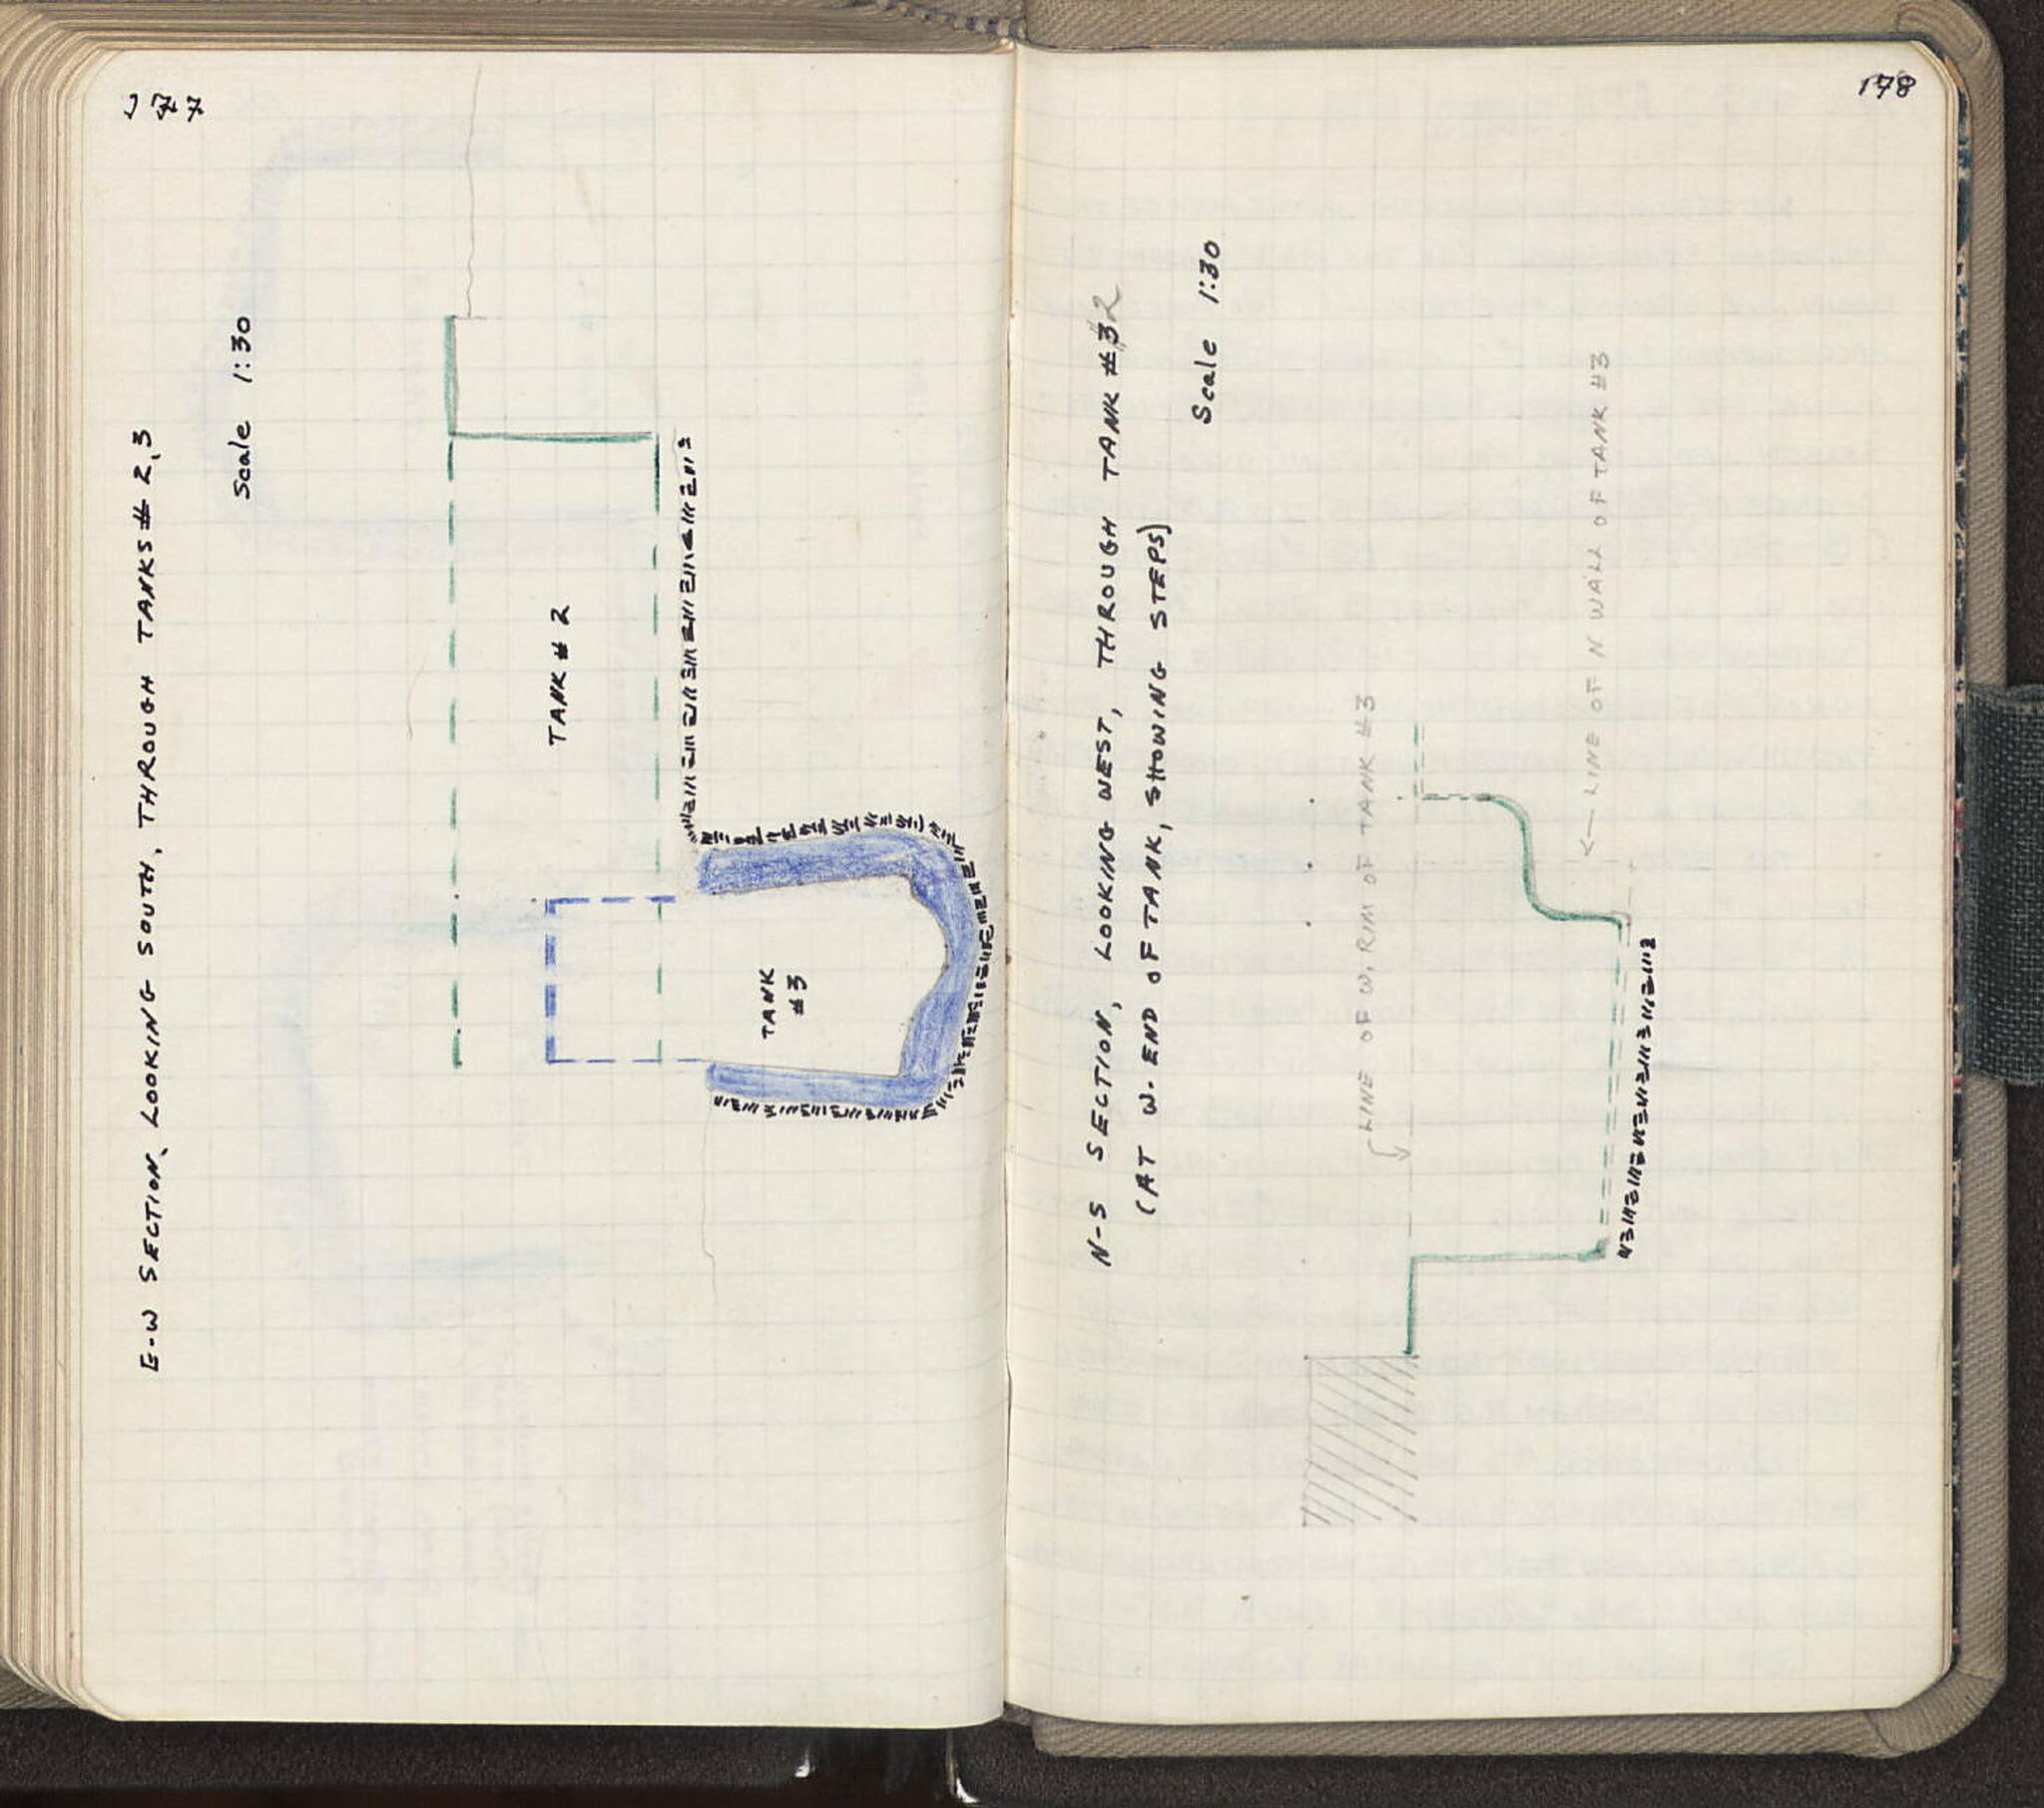 177
E-W SECTION, LOOKING SOUTH, THROUGH TANKS # 2,3
Scale 1:30
TANK # 2
TANK
#3
178
N-S SECTION, LOOKING WEST, THROUGH TANK #32
(AT W. END OF TANK, SHOWING STEPS)
Scale 1:30
LINE OF W. RIM OF TANK #3
← LINE OF N WALL OF TANK #3